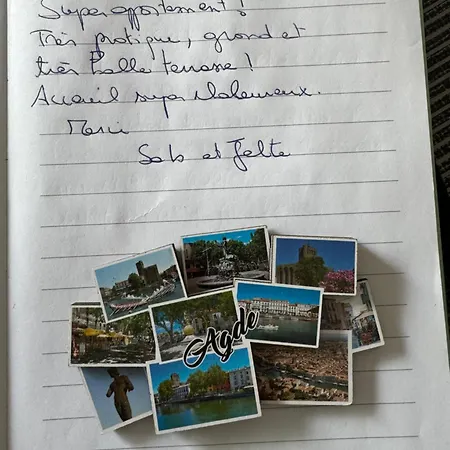 Super appartement !
Très pratique, grand et
très belle terrasse !
Accueil super chaleureux.
Merci
et Jelte
Agde